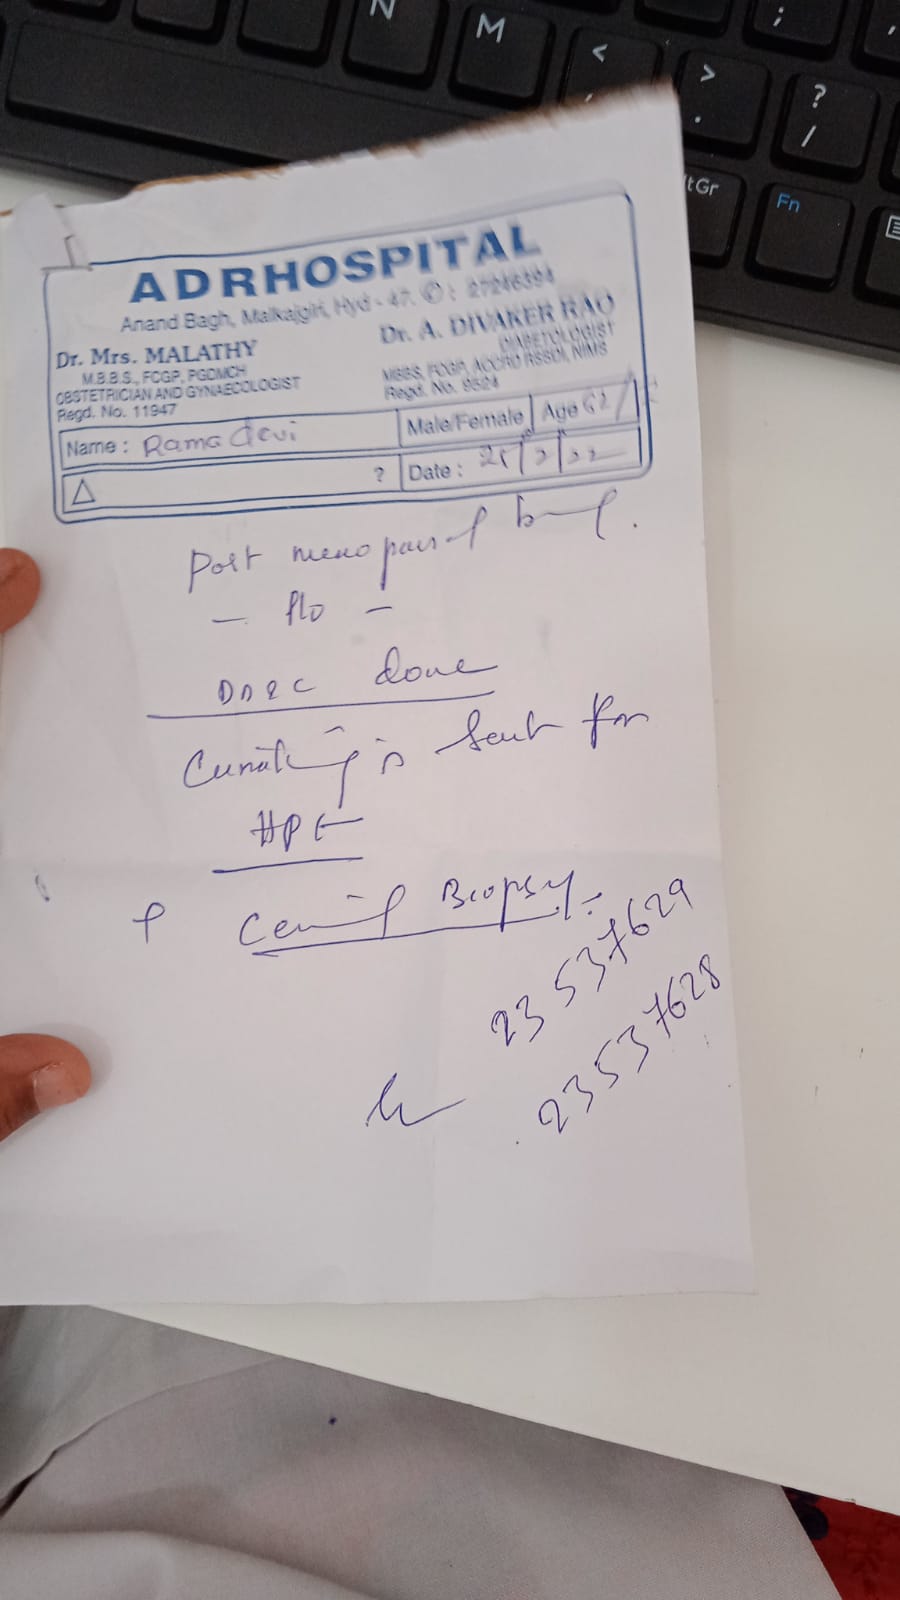 N M < , > . ? / ;
AltGr Fn
ADRHOSPITAL
Anand Bagh, Malkajgiri, Hyd - 47. ✆: 27246394
Dr. Mrs. MALATHY
M.B.B.S., FCGP, PGDMCH
OBSTETRICIAN AND GYNAECOLOGIST
Regd. No. 11947
Dr. A. DIVAKER RAO
DIABETOLOGIST
MBBS, FCGP, ACCRD RSSDI, NIMS
Regd. No. 9524
Name : Rama devi
Male/Female Age 62/
? Date :
Post menopausal
D&C done
Curetting is sent for
HPE
+ Cervical Biopsy.
23537629
23537628